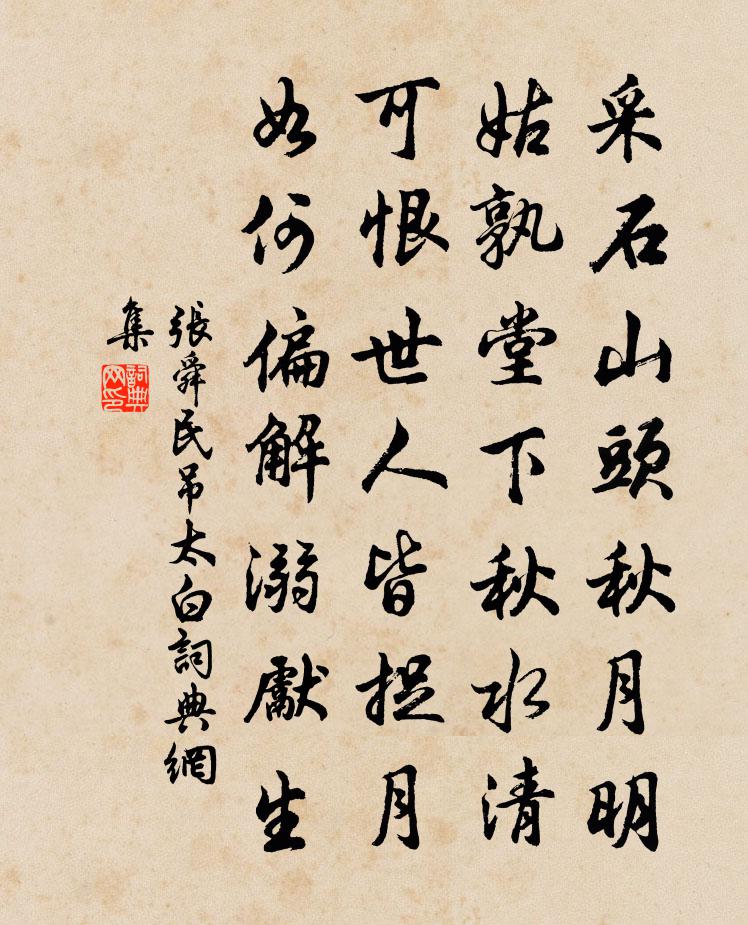 采石山頭秋月明
姑孰堂下秋水清
可恨世人皆捉月
如何偏解溺獻生
張舜民吊太白詞典網
集
詞典網印